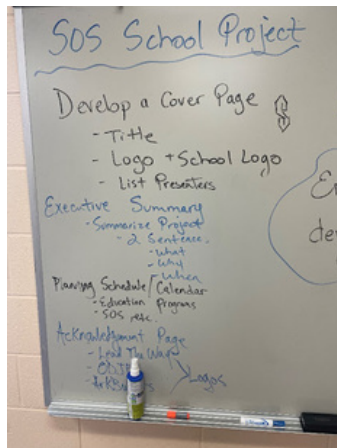 SOS School Project
Develop a Cover Page
- Title
- Logo + School Logo
- List Presenters
Executive Summary
- Summarize Project
- 2 Sentence.
- What
- Why
- When
Planning Schedule/Calendar
- Education Programs
- SOS etc.
Acknowledgment Page
- Lead The Way
Logos